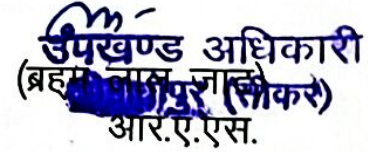 उपखण्ड अधिकारी
(ब्रह्म लाल जाट)
(सीकर)
आर.ए.एस.